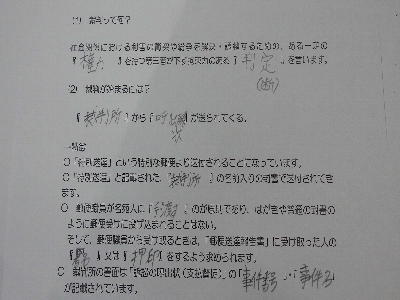 (1) 裁判って何?
社会関係における利害の衝突や紛争を解決・調整するための、ある一定の
『権力』を持つ第三者が下す拘束力のある『判定』を言います。
(断)
(2) 裁判が始まるには?
『裁判所』から『呼出状』が送られてくる。
○「特別送達」という特別な郵便より送付されることになっています。
○「特別送達」と記載された、『裁判所』の名前入りの封書で送付されてきます。
○ 郵便職員が名宛人に『手渡す』のが原則であり、はがきや普通の封書の
ように郵便受けに投げ込まれることはない。
そして、郵便職員から受け取るときは、「郵便送達報告書」に受け取った人の
『署名』又は『押印』をするよう求められます。
○ 裁判所の書面は「訴訟の呼出状(支払督促)」の『事件番号』・『事件名』
が記載されています。